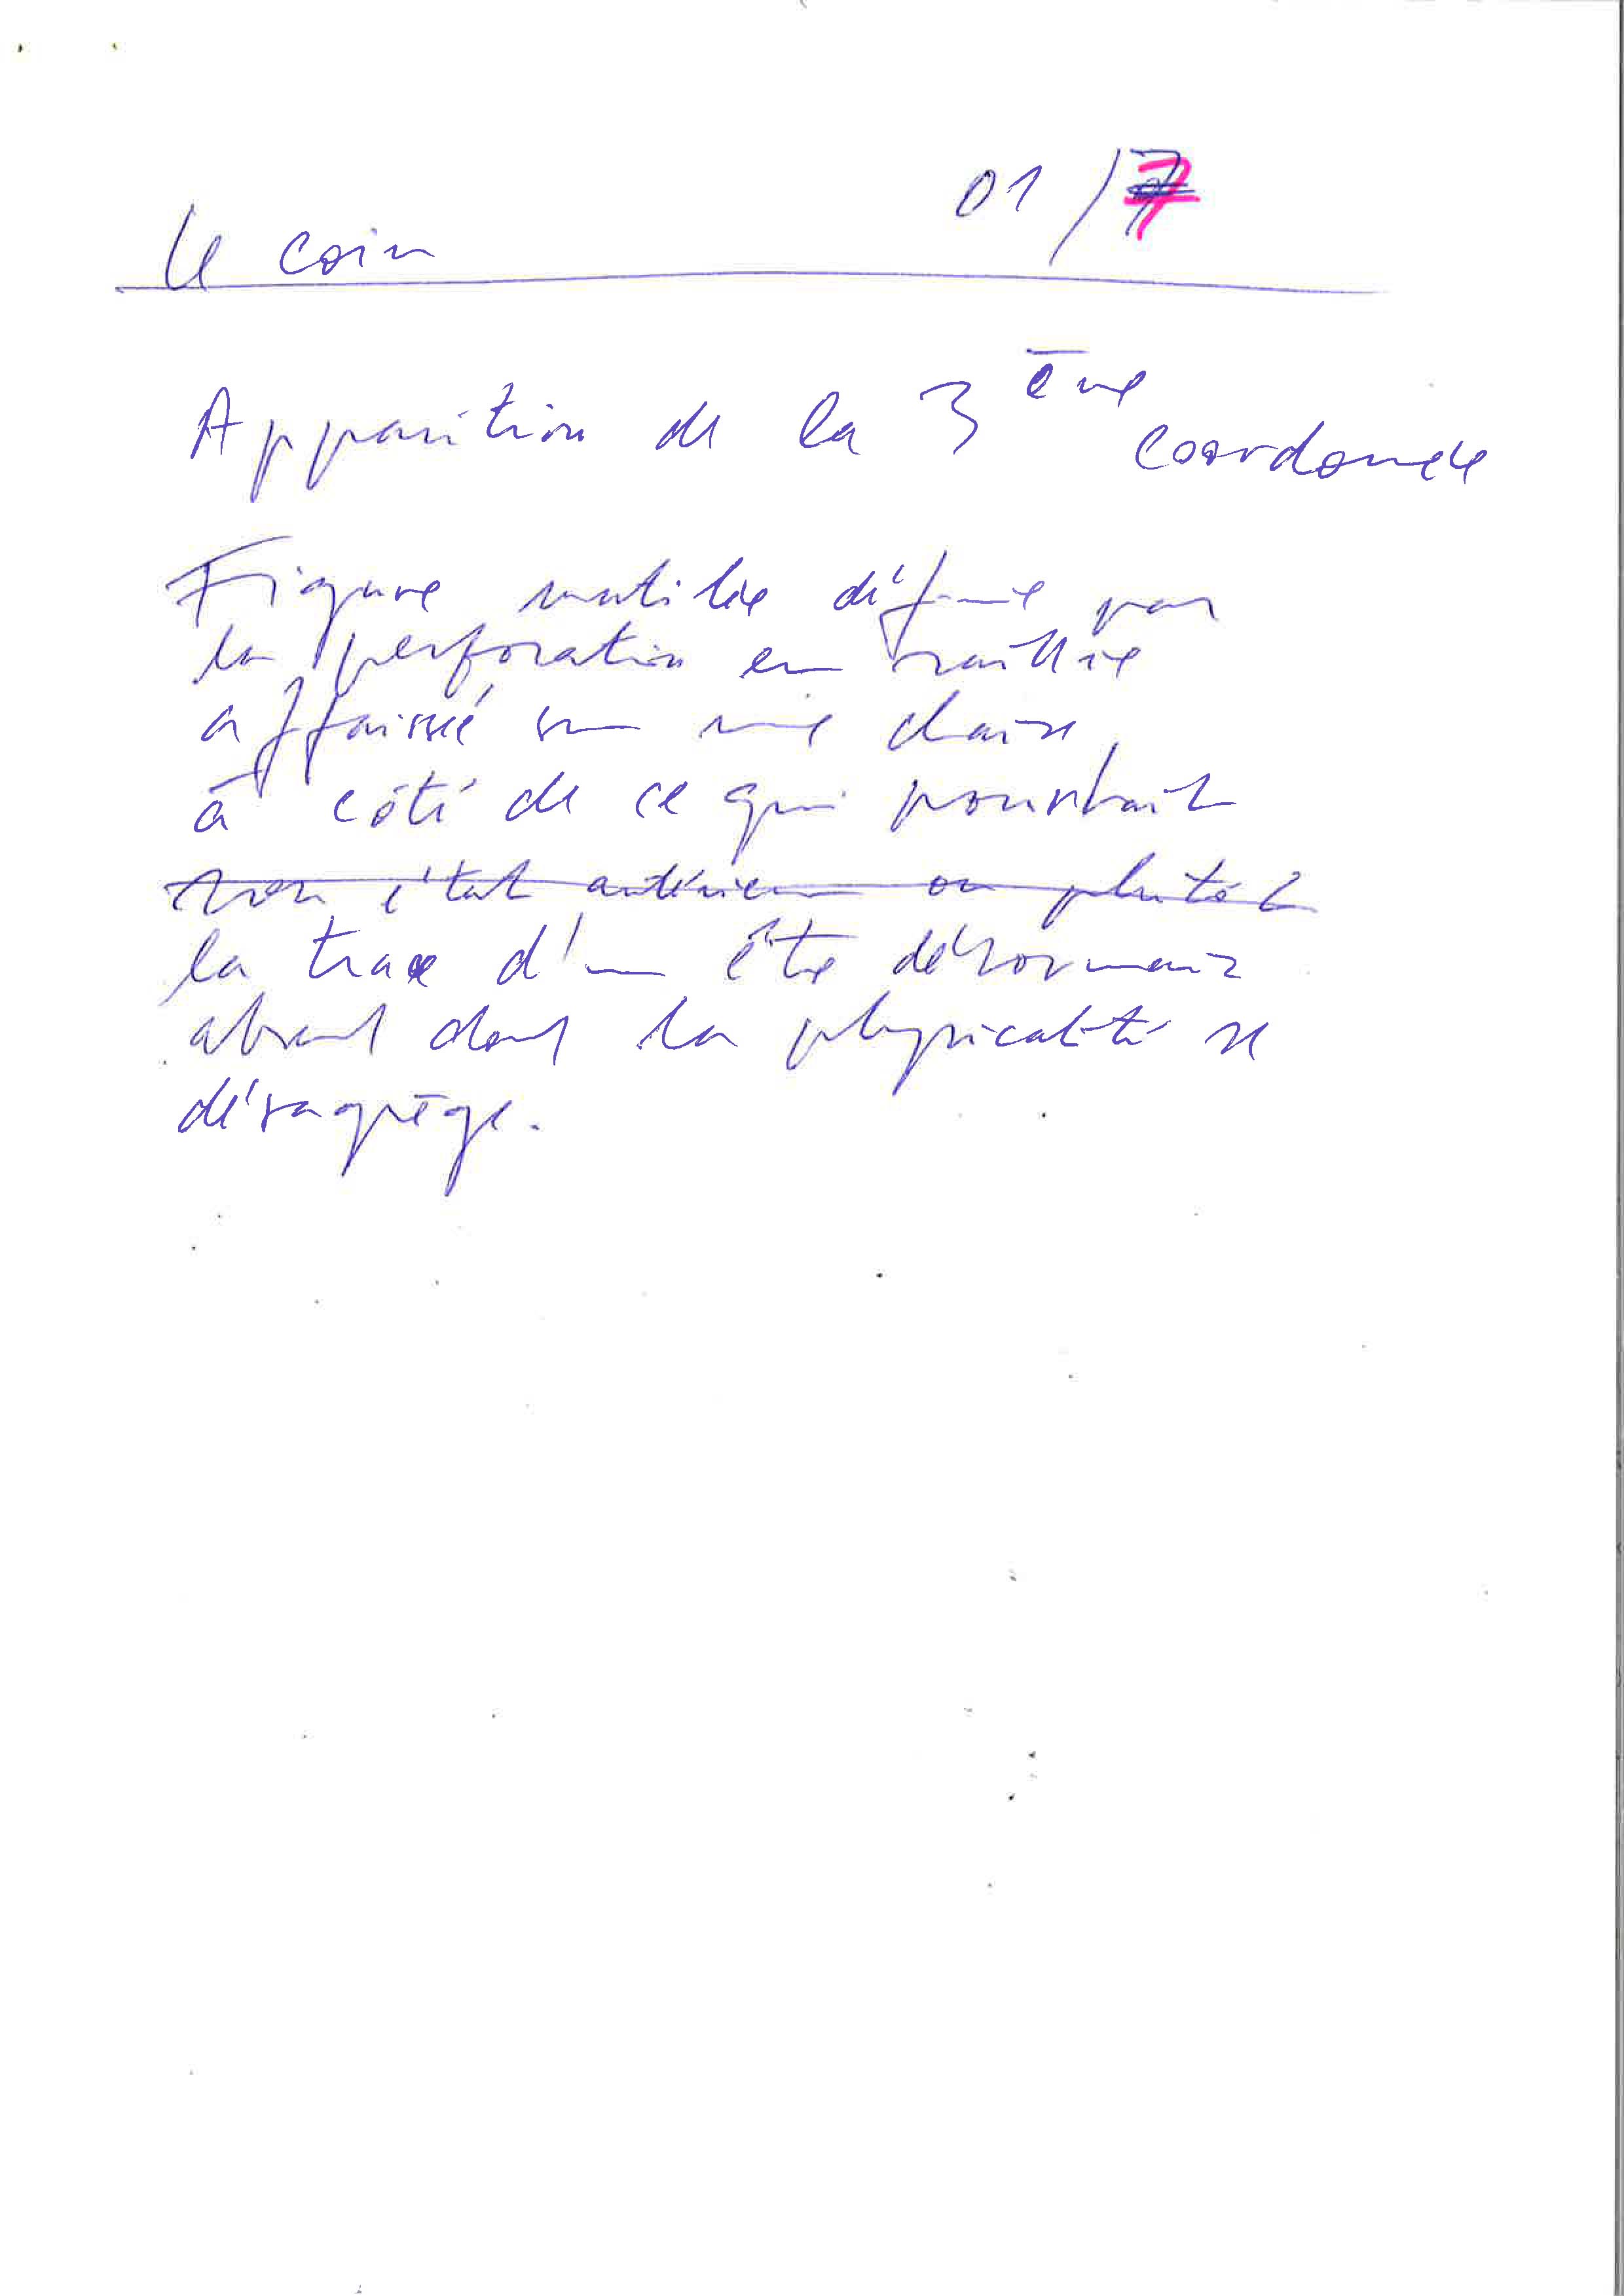 01/7
Le coin
Apparition de la 3ème
coordonnée
Figure mutilée définie par
la perforation en saillie
affaissée sur une chaise
à côté de ce qui pourrait
son état antérieur ou plutôt
la trace d'un être désormais
absent dont la physicalité se
désagrège.